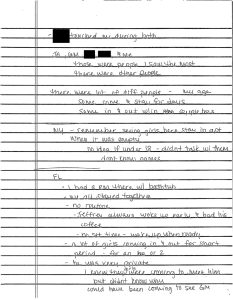 - touched me during both
JE, GM & me
those were people I saw the most
there were other people
there were lot of diff people - my age
Some come & stay for days
Some in & out w/in couple hrs
NY - remember seeing girls here stay in apt
when it was empty
no idea if under 18 - didnt talk w/ them
dont know names
FL
- I had a room there w/ bathtub
- but all stayed together
- no routine
- Jeffrey always woke up early & had his
coffee
- no set time - woke up when ready
- a lot of girls coming in & out for short
period - for an hr or 2
- he was very private
I knew they were coming to meet him
but didnt know why
could have been coming to see GM